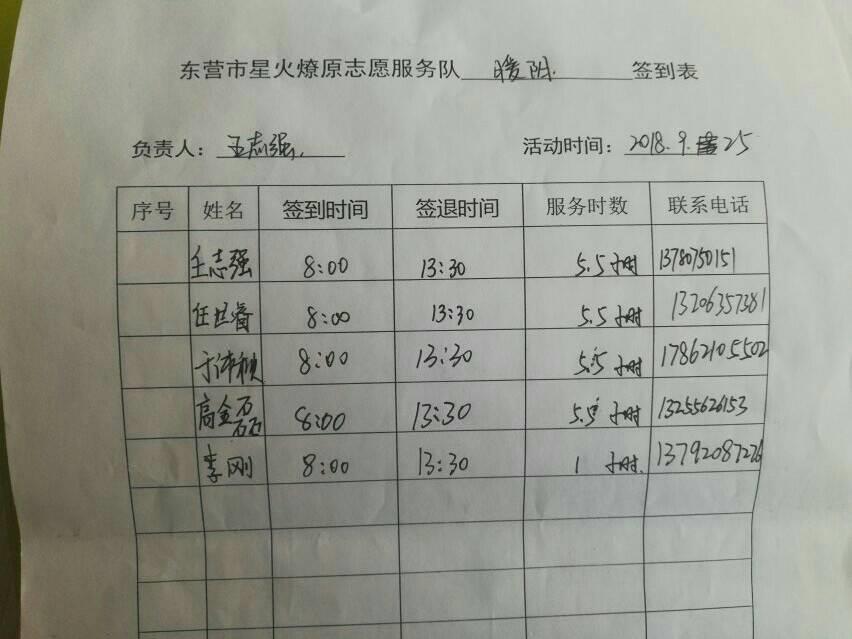 东营市星火燎原志愿服务队 暖阳 签到表
负责人：王志强 活动时间：2018.9.25
序号 姓名 签到时间 签退时间 服务时数 联系电话
王志强 8:00 13:30 5.5小时 13780750151
任 睿 8:00 13:30 5.5小时 13206357381
于 8:00 13:30 5.5小时 17862105502
高金磊 8:00 13:30 5.5小时 13255626153
李刚 8:00 13:30 1 小时